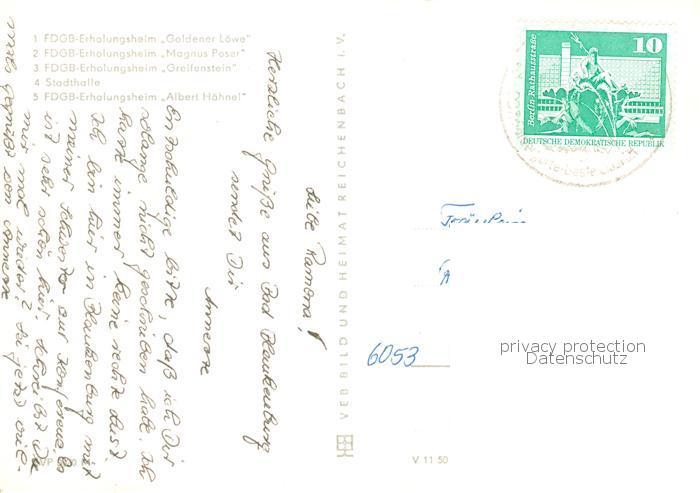 1 FDGB-Erholungsheim „Goldener Löwe"
2 FDGB-Erholungsheim „Magnus Poser"
3 FDGB-Erholungsheim „Greifenstein"
4 Stadthalle
5 FDGB-Erholungsheim „Albert Hähnel"
VEB BILD UND HEIMAT REICHENBACH i. V.
V 11 50
10
Berlin, Rathausstraße
DEUTSCHE DEMOKRATISCHE REPUBLIK
Liebe Ramona!
Herzliche Grüße aus Bad Blankenburg
sendet Dir
Annerose
Entschuldige bitte, daß ich Dir
solange nicht geschrieben habe. Ich
hatte immer keine rechte Lust.
Ich bin hier in Blankenburg mit
meiner Schwester zur Konferenz. Es
ist sehr schön hier. Schreibst Du
mir mal wieder? Sei jetzt viel-
mals gegrüßt von Annerose
6053
privacy protection
Datenschutz